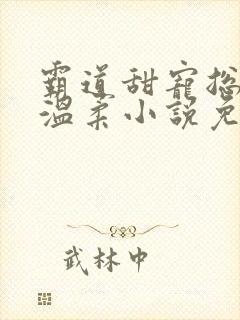 霸道甜寵總
溫柔小說免
武林中